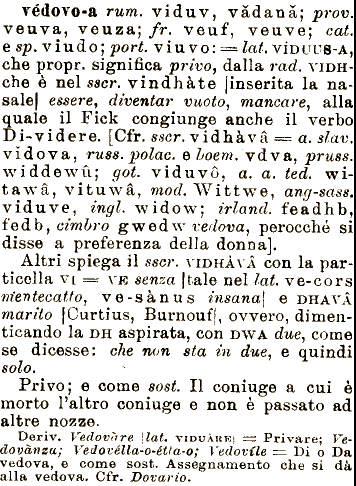 védovo-a rum. viduv, vădană; prov.
veuva, veuza; fr. veuf, veuve; cat.
e sp. viudo; port. viuvo: = lat. VIDUUS-A,
che propr. significa privo, dalla rad. VIDH-
che è nel sscr. vindhàte [inserita la na-
sale] essere, diventar vuoto, mancare, alla
quale il Fick congiunge anche il verbo
Di-videre. [Cfr. sscr. vidhàvâ = a. slav.
vidova, russ. polac. e boem. vdva, pruss.
widdewû; got. viduvô, a. a. ted. wi-
tawâ, vituwâ, mod. Wittwe, ang-sass.
viduve, ingl. widow; irland. feadhb,
fedb, cimbro gwedw vedova, perocché si
disse a preferenza della donna].
Altri spiega il sscr. VIDHÀVÂ con la par-
ticella VI = VE senza [tale nel lat. ve-cors
mentecatto, ve-sànus insana] e DHAVÂ
marito [Curtius, Burnouf], ovvero, dimen-
ticando la DH aspirata, con DWA due, come
se dicesse: che non sta in due, e quindi
solo.
Privo; e come sost. Il coniuge a cui è
morto l'altro coniuge e non è passato ad
altre nozze.
Deriv. Vedovàre [lat. VIDUÀRE] = Privare; Ve-
dovànza; Vedovélla-o-étta-o; Vedovíle = Di o Da
vedova, e come sost. Assegnamento che si dà
alla vedova. Cfr. Dovario.